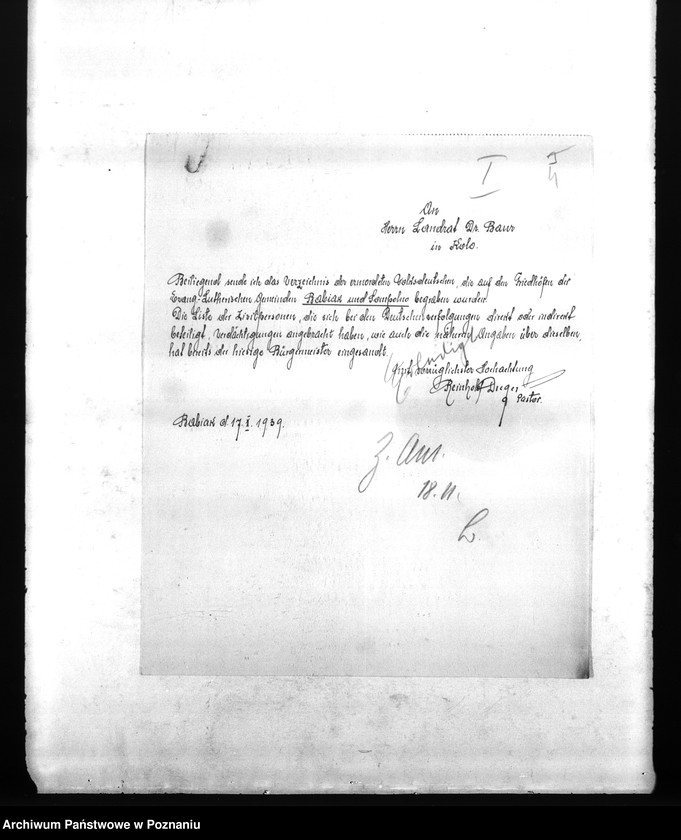 I
An
Herrn Landrat Dr. Baur
in Kolo.
Beiliegend sende ich das Verzeichnis der ermordeten Volksdeutschen, die auf den Friedhöfen der
Evang.-Lutherischen Gemeinden Babiak und Sompolno begraben wurden.
Die Liste der Zivilpersonen, die sich bei den Deutschenverfolgungen direkt oder indirekt
beteiligt, Verdächtigungen angebracht haben, wie auch die näheren Angaben über dieselben,
hat bereits der hiesige Bürgermeister eingesandt.
Mit vorzüglichster Hochachtung
Reinhold
Pastor.
Babiak d. 17. 1939.
Z. Am.
18. 11.
Archiwum Państwowe w Poznaniu